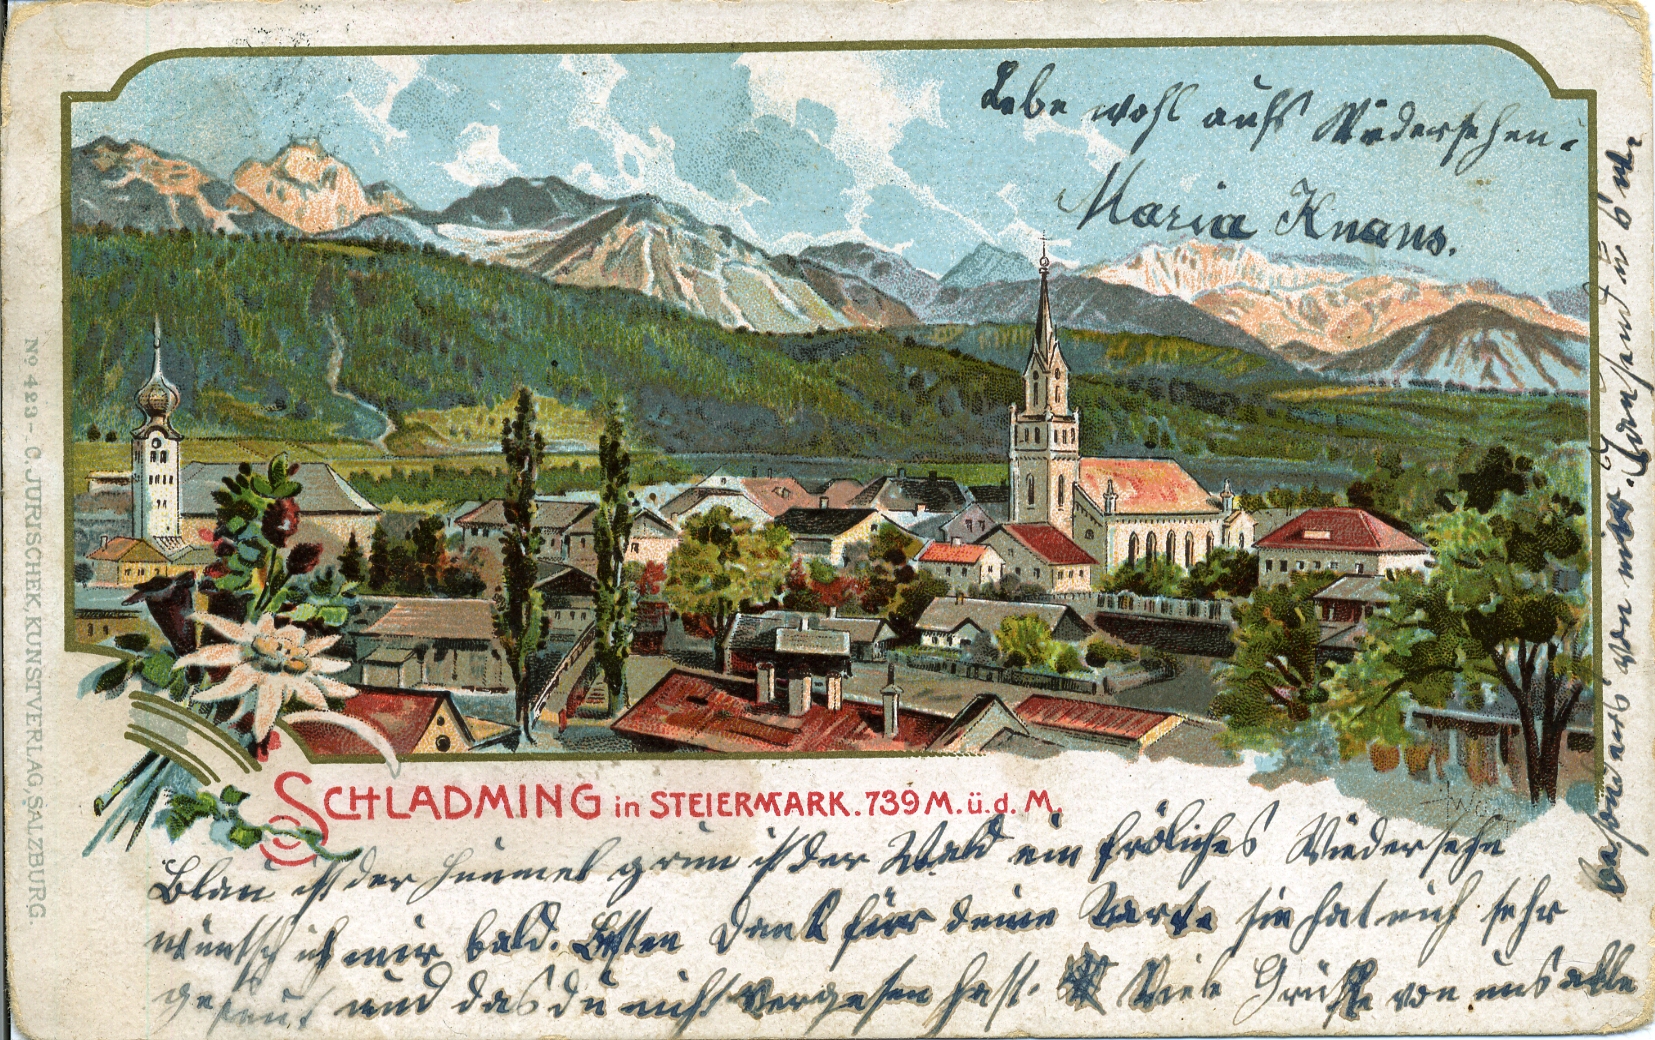 Lebe wohl aufs Wiedersehen.
Maria Knaus.
No 423 - C. JURISCHEK, KUNSTVERLAG, SALZBURG.
SCHLADMING in STEIERMARK. 739 M. ü. d. M.
Blau ist der Himmel grün ist der Wald ein fröliches Wiedersehn
wüntsch ich mir bald. Besten Dank für deine Karte sie hat mich sehr
gefreut und das du nicht vergesen hast. Viele Grüße von uns alle
besonders von mir.